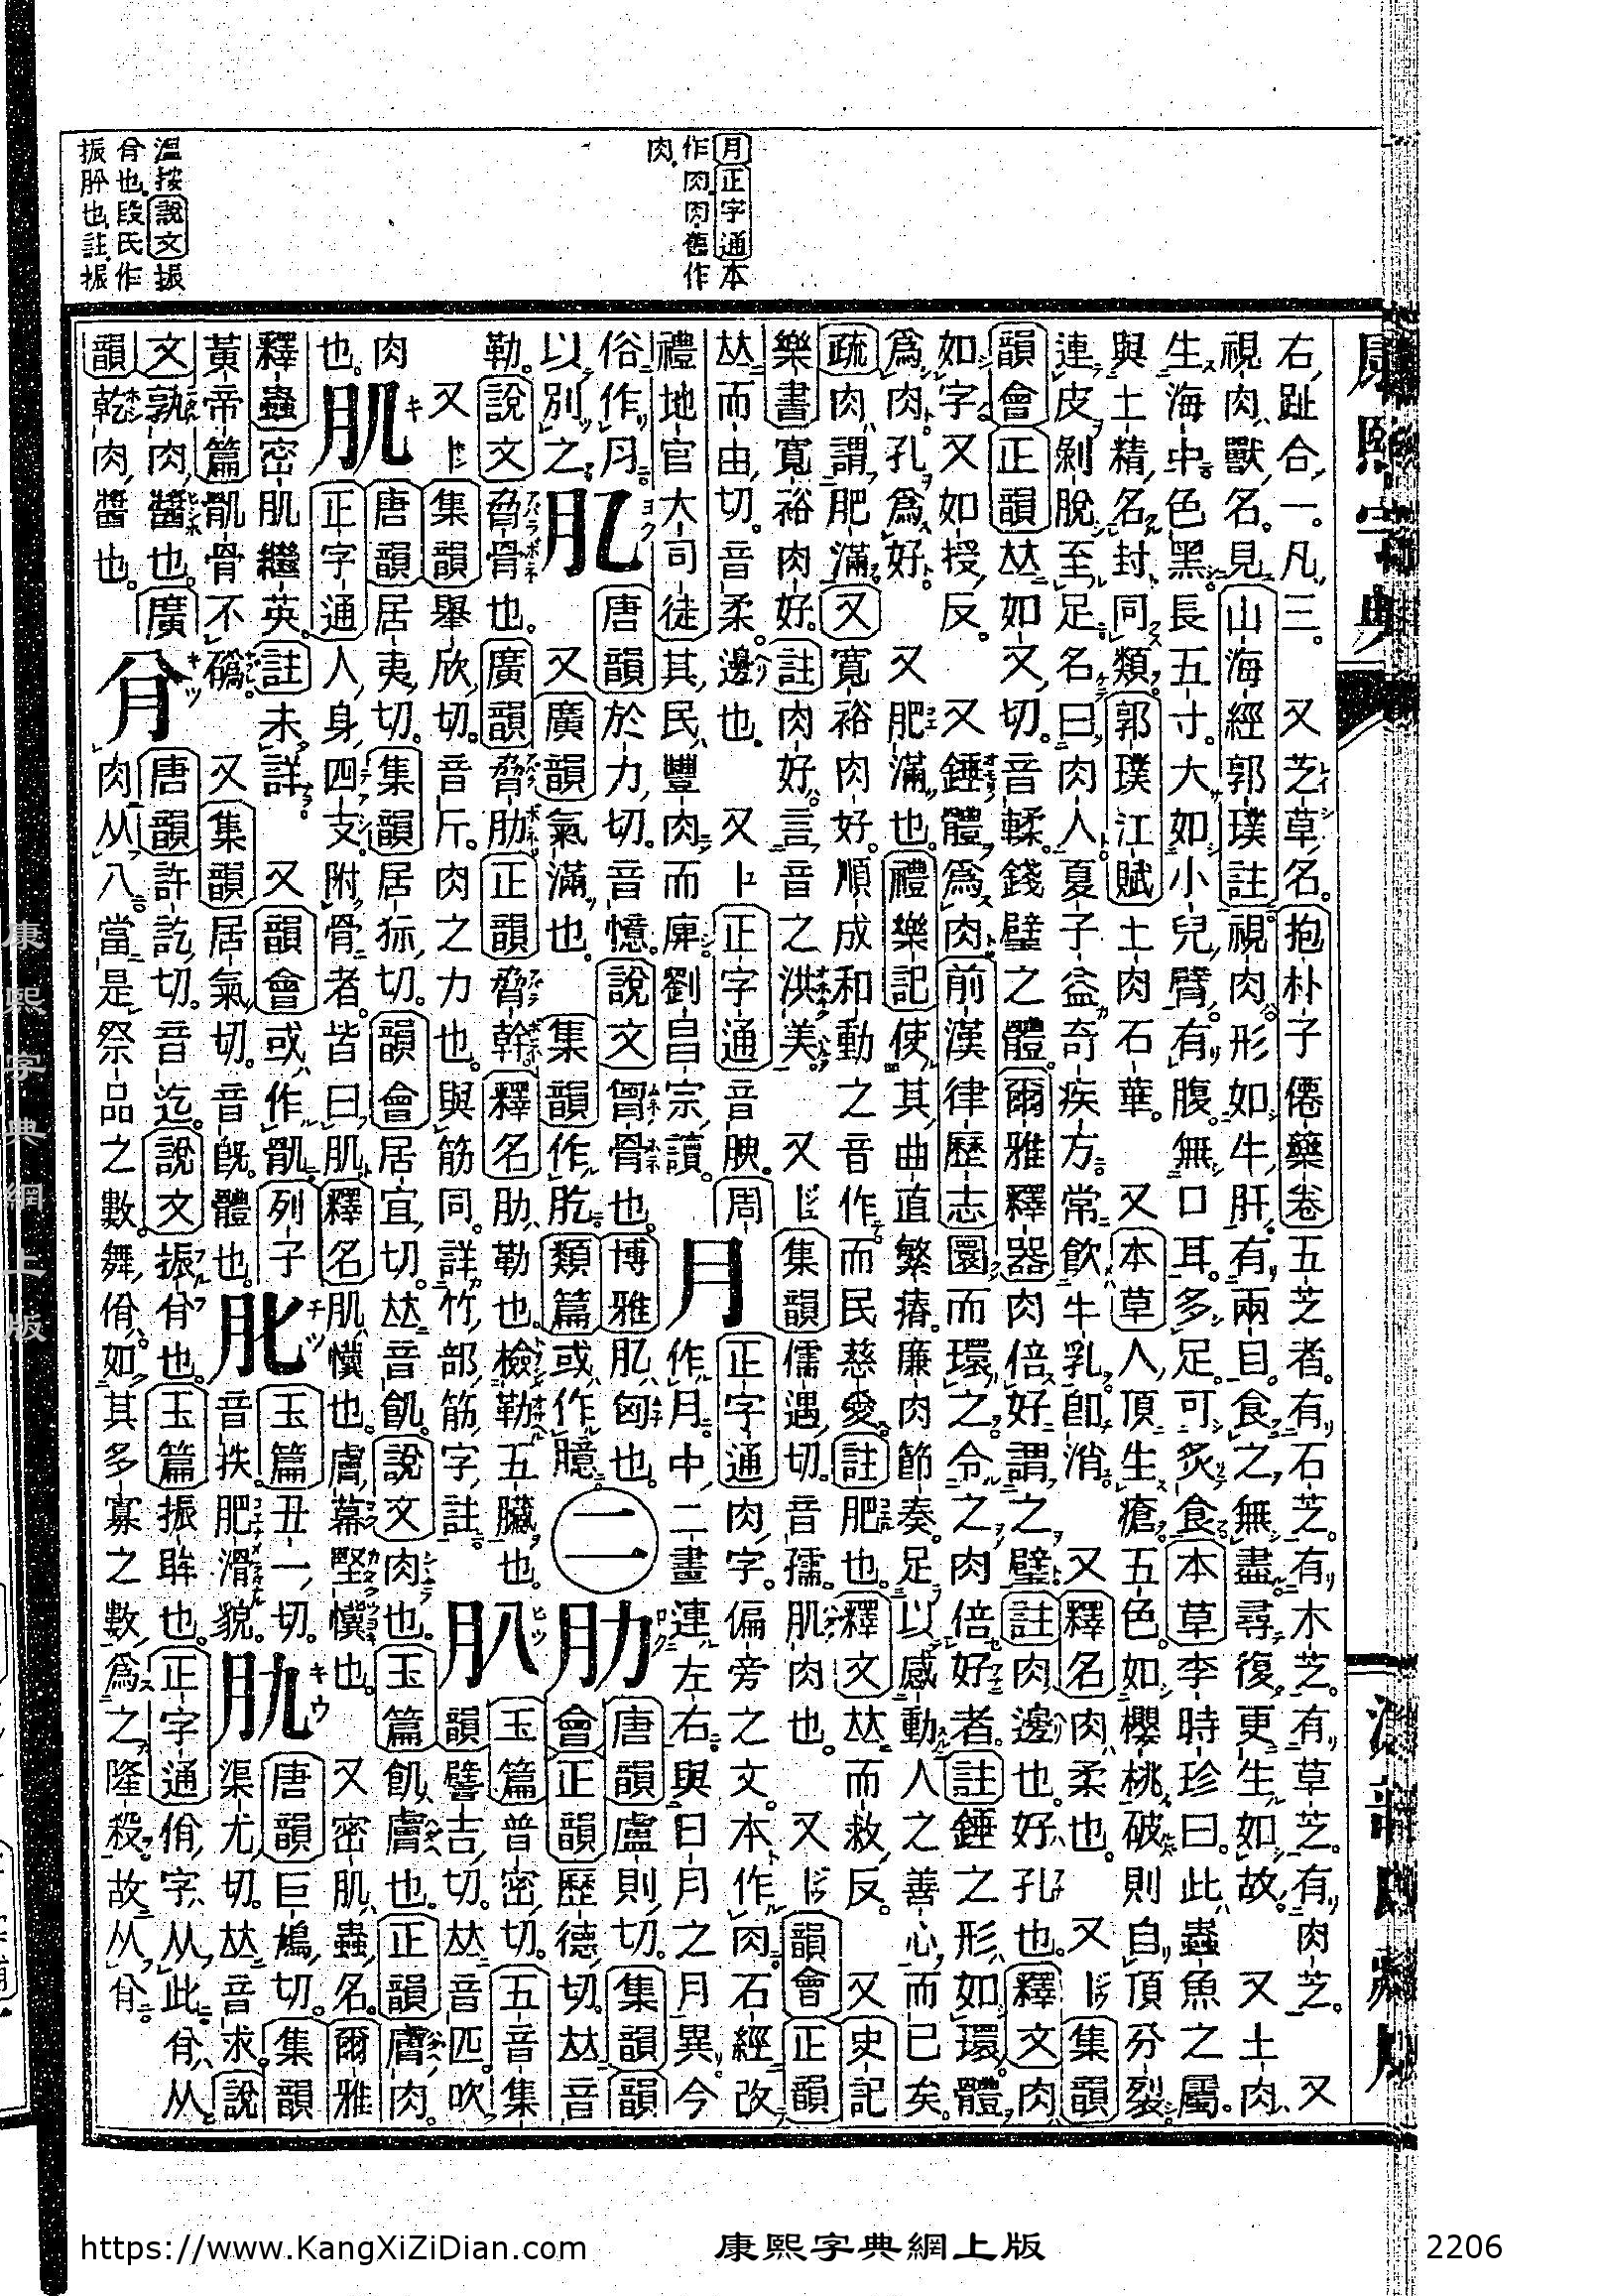 月正字通本
作肉肉舊作
肉
溫按說文振
肸也段氏作
振肸也註振
康熙字典
右趾合一。凡三。 又芝草名。抱朴子僊藥卷五芝者。有石芝。有木芝。有草芝。有肉芝。 又
視肉獸名。見山海經郭璞註視肉形如牛肝。有兩目。食之無盡。尋復更生如故。 又土肉
生海中。色黑。長五寸。大如小兒臂。有腹。無口耳。多足。可炙食。本草李時珍曰。此蟲魚之屬。
與土精名封同類。郭璞江賦土肉石華。 又本草人頂生瘡。五色。如櫻桃破則自頂分裂
連皮剝脫至足。名曰肉人。夏子益奇疾方。常飮牛乳卽消。 又釋名肉柔也。 又集韻
韻會正韻𠀤如又切。音輮。錢璧之體。爾雅釋器肉倍好謂之璧註肉邊也。好孔也。釋文肉
如字。又如授反。 又錘體爲肉。前漢律歷志圜而環之。令之肉倍好者。註錘之形如環。體
爲肉。孔爲好。 又肥滿也。禮樂記使其曲直繁瘠。廉肉節奏。足以感動人之善心而已矣。
疏肉謂肥滿。又寬裕肉好。順成和動之音作而民慈愛。註肥也。釋文𠀤而救反。 又史記
樂書寬裕肉好。註肉好。言音之洪美。 又集韻儒遇切。音孺。肌肉也。 又韻會正韻
𠀤而由切。音柔。邊也。 又正字通音腴。周
禮地官大司徒其民豐肉而庳劉昌宗讀。
月 正字通肉字。偏旁之文。本作肉。石經改
作月。中二畫連左右。與日月之月異。今
俗作月。以別之。
肊 唐韻於力切。音憶。說文胷骨也。博雅肊匈也。
又廣韻氣滿也。集韻作肐。類篇或作臆。
二
肋 唐韻盧則切。集韻韻
會正韻歷德切𠀤音
勒。說文脅骨也。廣韻脅肋。正韻脅幹。釋名肋勒也。檢勒五臟也。
又集韻舉欣切。音斤。肉之力也。與筋同。詳竹部筋字註。
玉篇普密切。五音集
韻譬吉切。𠀤音匹。吹
肉也。
肌 唐韻居夷切。集韻居狋切。韻會居宜切。𠀤音飢。說文肉也。玉篇飢膚也。正韻膚肉。
正字通人身四支附骨者。皆曰肌。釋名肌懻也。膚幕堅懻也。 又密肌蟲名。爾雅
釋蟲密肌繼英。註未詳。 又韻會或作骪列子
黃帝篇骪骨不䃣 又集韻居氣切。音旣。體也。
玉篇丑一切。
音抶。肥滑貌。
肍 唐韻巨鳩切。集韻
渠尤切。𠀤音求。說
文孰肉醬也。廣
韻乾肉醬也。
唐韻許訖切。音迄。說文振也。玉篇振眸也。正字通佾字从此。从
肉从八。當是祭品之數。舞佾。如其多寡之數爲之隆殺。故从
https://www.KangXiZiDian.com
康熙字典網上版
2206
康熙字典網上版